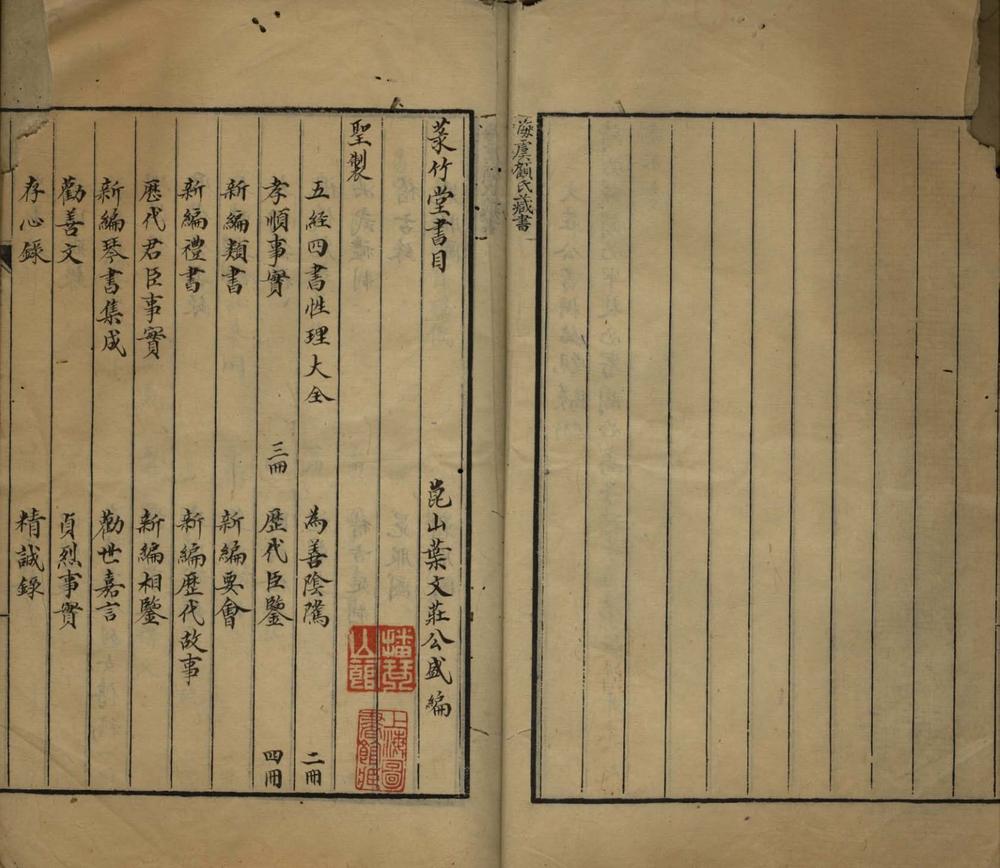 海虞顧氏藏書
菉竹堂書目　崑山葉文莊公盛編
聖製
五經四書性理大全　為善陰隲　二冊
孝順事實　三冊　歷代臣鑒　四冊
新編類書　新編要會
新編禮書　新編歷代故事
歷代君臣事實　新編相鑒
新編琴書集成　勸世嘉言
勸善文　貞烈事實
存心錄　精誠錄
播琴山館
上海圖書館藏